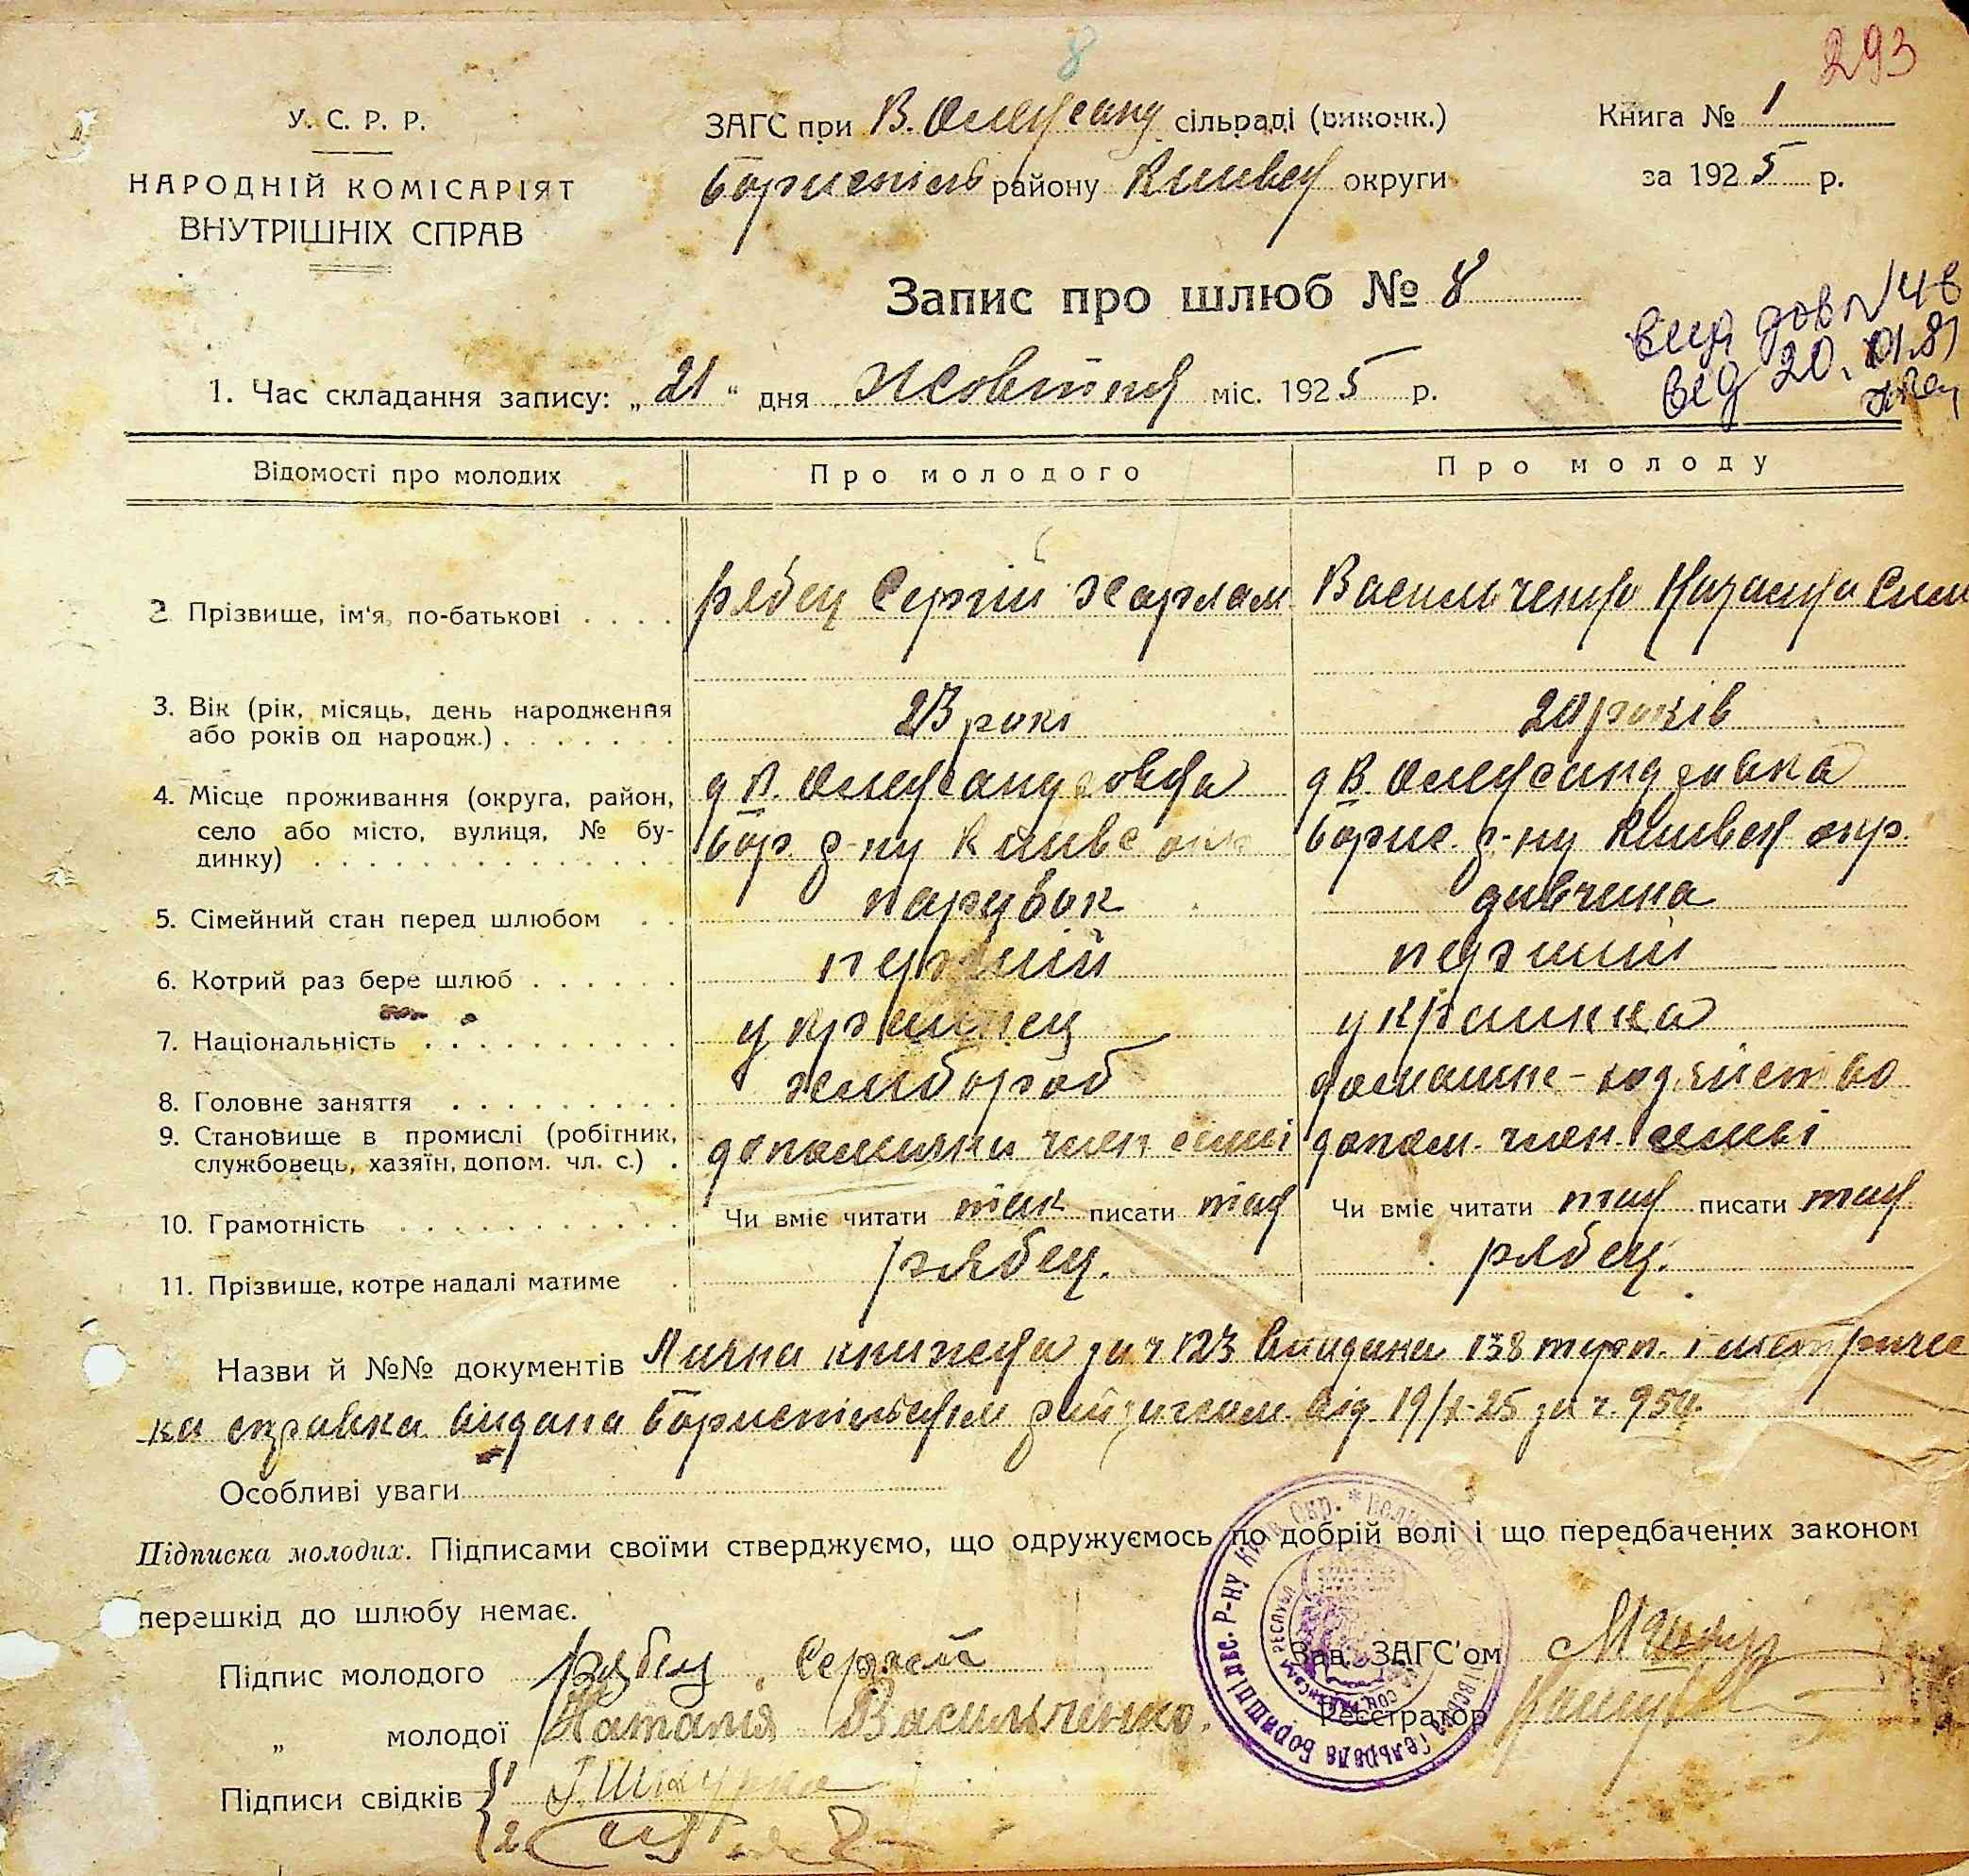 293
8
У. С. Р. Р.
НАРОДНІЙ КОМІСАРІЯТ
ВНУТРІШНІХ СПРАВ
ЗАГС при В. Олександ сільраді (виконк.)
Бориспіль району Київськ округи
Книга № 1
за 1925 р.
Запис про шлюб № 8
вид
від 20.01.81
1. Час складання запису: „21“ дня Жовтня міс. 1925 р.
Відомості про молодих
Про молодого
Про молоду
2 Прізвище, ім'я, по-батькові . . . .
Рябец Сергій Харлам
Васильченко Сим
3. Вік (рік, місяць, день народження
або років од народж.) . . . . . . .
23 рокі
20 років
4. Місце проживання (округа, район,
село або місто, вулиця, № бу-
динку) . . . . . . . . . . . . . . .
д В. Олександровка
Бор. р-ну Київс окр
д В. Олександровка
Борис. р-ну Київськ окр.
5. Сімейний стан перед шлюбом . .
парубок
дивчина
6. Котрий раз бере шлюб . . . . . .
перший
перший
7. Національність . . . . . . . . . .
украинец
украинка
8. Головне заняття . . . . . . . . .
хлибороб
домашне-хозяйство
9. Становище в промислі (робітник,
службовець, хазяїн, допом. чл. с.) .
член семьі
допом. член семьі
10. Грамотність . . . . . . . . . . . .
Чи вміє читати так писати так
Чи вміє читати так писати так
11. Прізвище, котре надалі матиме .
Рябец.
Рябец.
Назви й №№ документів Лична книжка за ч 123 видана 138 і метриче
ка справка видана Бориспільским від 19/X-25 за ч. 954.
Особливі уваги
Підписка молодих. Підписами своїми стверджуємо, що одружуємось по добрій волі і що передбачених законом
перешкід до шлюбу немає.
Підпис молодого Рябец Сергей
„ молодої Наталія Васильченко.
Зав. ЗАГС'ом
Реєстратор
Підписи свідків 1
2